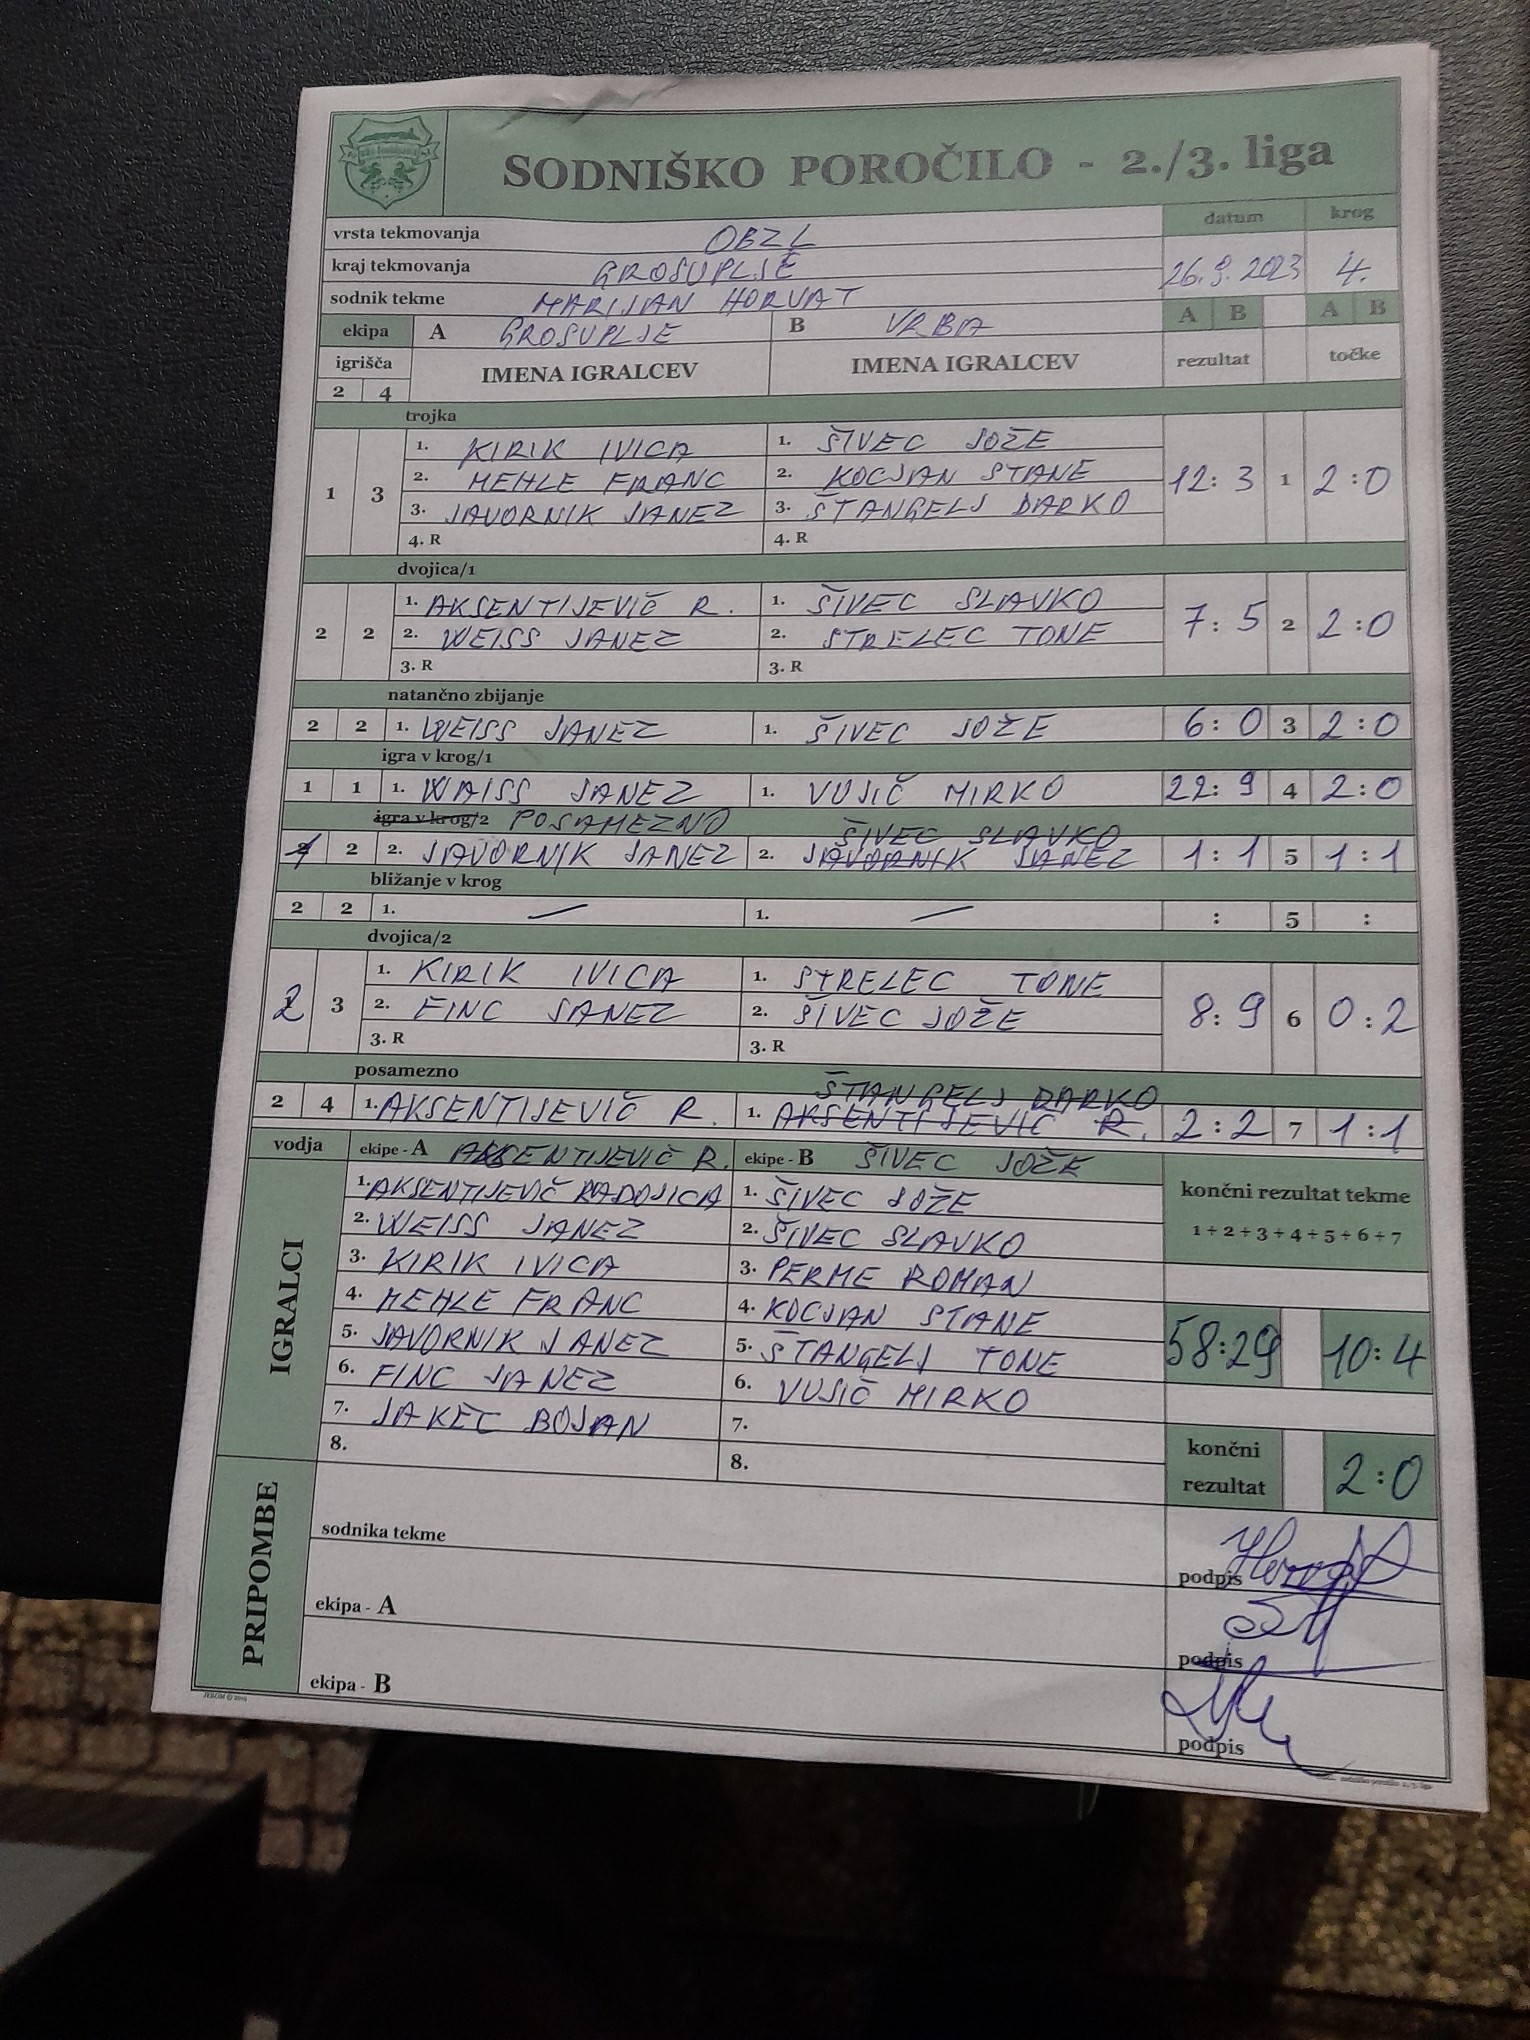 SODNIŠKO POROČILO - 2./3. liga
vrsta tekmovanja OBZL datum krog
kraj tekmovanja GROSUPLJE 26.9.2023 4.
sodnik tekme MARIJAN HORVAT
ekipa A GROSUPLJE B VRBA A B A B
igrišča IMENA IGRALCEV IMENA IGRALCEV rezultat točke
2 4
trojka
1. KIRIK IVICA 1. ŠIVEC JOŽE
2. MEHLE FRANC 2. KOCJAN STANE
1 3 12:3 1 2:0
3. JAVORNIK JANEZ 3. ŠTANGELJ DARKO
4. R 4. R
dvojica/1
1. AKSENTIJEVIČ R. 1. ŠIVEC SLAVKO
2 2 2. WEISS JANEZ 2. STRELEC TONE 7:5 2 2:0
3. R 3. R
natančno zbijanje
2 2 1. WEISS JANEZ 1. ŠIVEC JOŽE 6:0 3 2:0
igra v krog/1
1 1 1. WAISS JANEZ 1. VUJIČ MIRKO 22:9 4 2:0
igra v krog/2 POSAMEZNO ŠIVEC SLAVKO
2 2. JAVORNIK JANEZ 2. JAVORNIK JANEZ 1:1 5 1:1
bližanje v krog
2 2 1. — 1. — : 5 :
dvojica/2
1. KIRIK IVICA 1. STRELEC TONE
2 3 2. FINC JANEZ 2. ŠIVEC JOŽE 8:9 6 0:2
3. R 3. R
posamezno ŠTANGELJ DARKO
2 4 1. AKSENTIJEVIČ R. 1. AKSENTIJEVIČ R. 2:2 7 1:1
vodja ekipe - A AKSENTIJEVIČ R. ekipe - B ŠIVEC JOŽE
IGRALCI
1. AKSENTIJEVIČ RADOJICA 1. ŠIVEC JOŽE končni rezultat tekme
2. WEISS JANEZ 2. ŠIVEC SLAVKO 1 + 2 + 3 + 4 + 5 + 6 + 7
3. KIRIK IVICA 3. PERME ROMAN
4. MEHLE FRANC 4. KOCJAN STANE
5. JAVORNIK JANEZ 5. ŠTANGELJ TONE 58:29 10:4
6. FINC JANEZ 6. VUJIČ MIRKO
7. JAKEC BOJAN 7.
8. 8.
končni rezultat 2:0
PRIPOMBE
sodnika tekme podpis
ekipa - A podpis
ekipa - B podpis